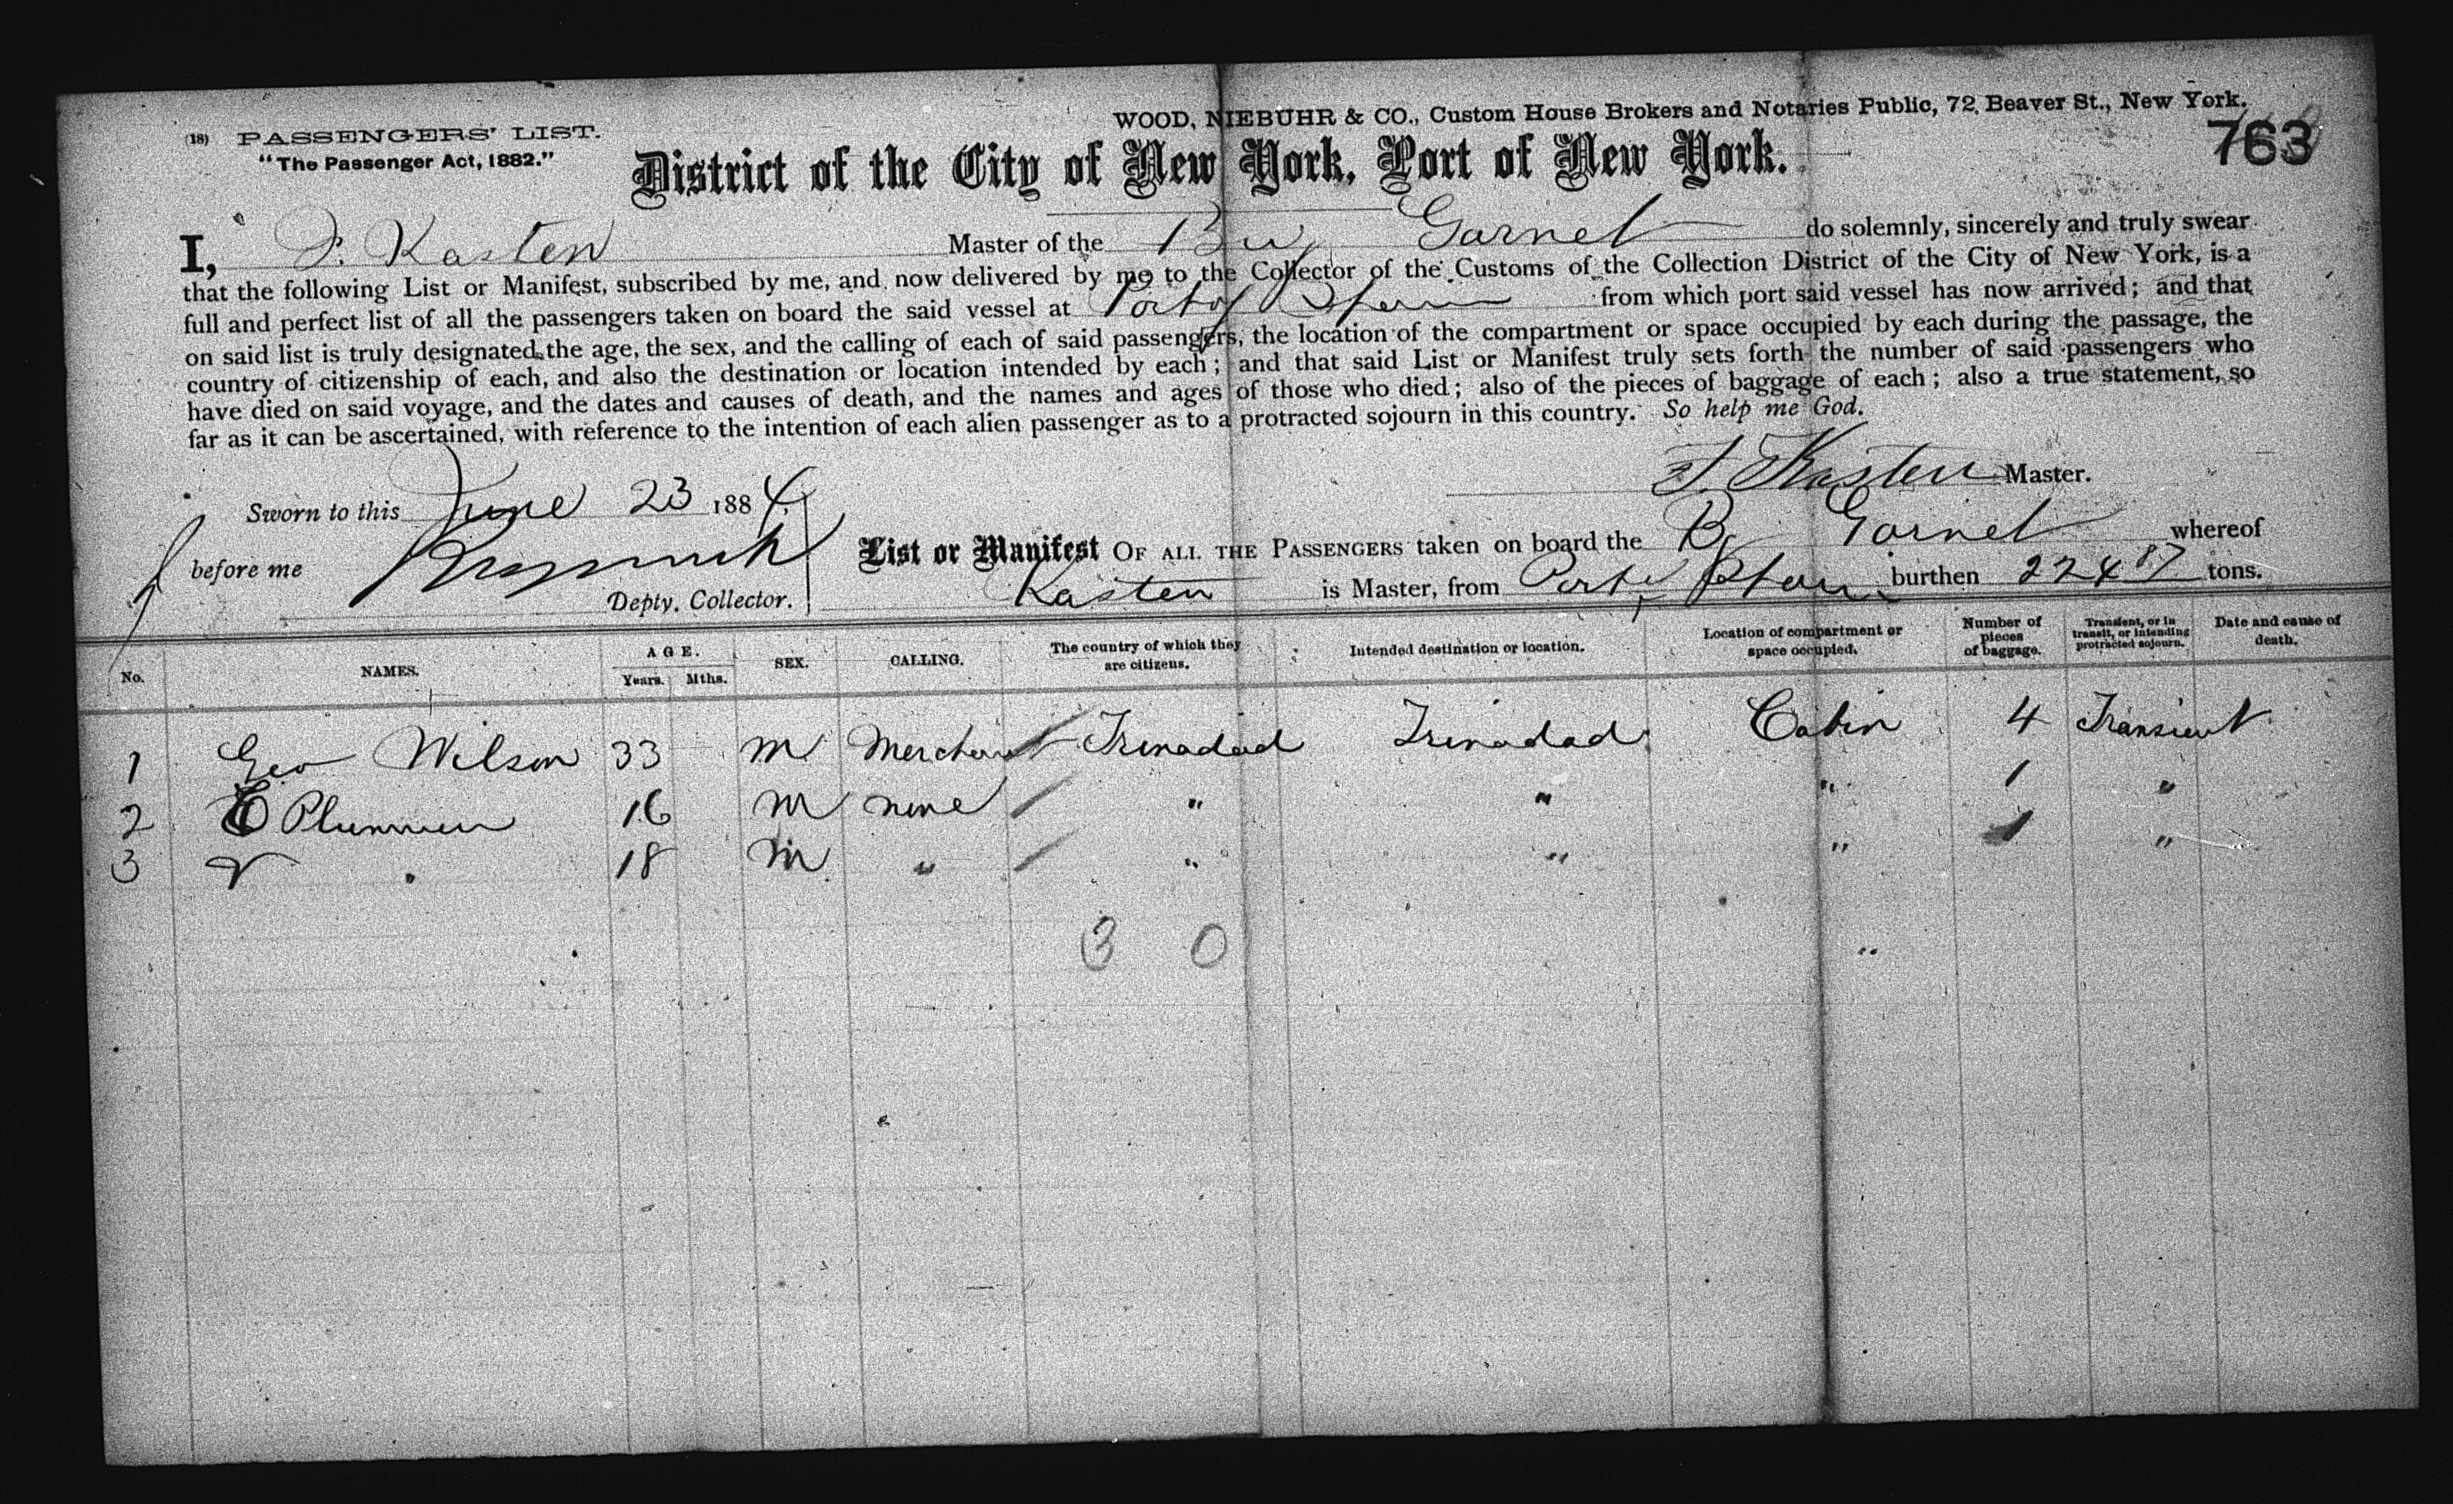 WOOD, NIEBUHR & CO., Custom House Brokers and Notaries Public, 72 Beaver St., New York.
(18) PASSENGERS' LIST.
"The Passenger Act, 1882."
763
District of the City of New York, Port of New York.
I, F. Kasten Master of the Garnet do solemnly, sincerely and truly swear
that the following List or Manifest, subscribed by me, and now delivered by me to the Collector of the Customs of the Collection District of the City of New York, is a
full and perfect list of all the passengers taken on board the said vessel at Port of Spain from which port said vessel has now arrived; and that
on said list is truly designated the age, the sex, and the calling of each of said passengers, the location of the compartment or space occupied by each during the passage, the
country of citizenship of each, and also the destination or location intended by each; and that said List or Manifest truly sets forth the number of said passengers who
have died on said voyage, and the dates and causes of death, and the names and ages of those who died; also of the pieces of baggage of each; also a true statement, so
far as it can be ascertained, with reference to the intention of each alien passenger as to a protracted sojourn in this country. So help me God.
F. Kasten Master.
Sworn to this June 23 1884
before me
Depty. Collector.
List or Manifest OF ALL THE PASSENGERS taken on board the Garnet whereof
Kasten is Master, from Port of Spain burthen 224 87 tons.
No. NAMES. AGE. Years. Mths. SEX. CALLING. The country of which they are citizens. Intended destination or location. Location of compartment or space occupied. Number of pieces of baggage. Transient, or in transit, or intending protracted sojourn. Date and cause of death.
1 Geo Wilson 33 M Merchant Trinadad Trinadad Cabin 4 Transient
2 Plummer 16 M none " " " 1 "
3 " 18 M " " " " 1 "
3 0 "